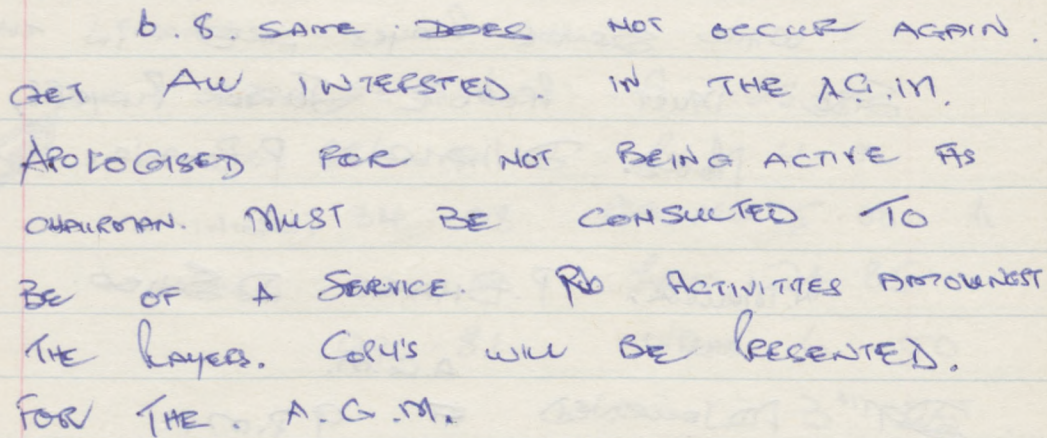 6.8 SAME DOES NOT OCCUR AGAIN.
GET ALL INTERSTED. IN THE A.G.M.
APOLOGISED FOR NOT BEING ACTIVE AS
CHAIRMAN. MUST BE CONSULTED TO
BE OF A SERVICE. ACTIVITIES AMOUNGST
THE PLAYERS. COPY'S WILL BE PRESENTED.
FOR THE. A.G.M.